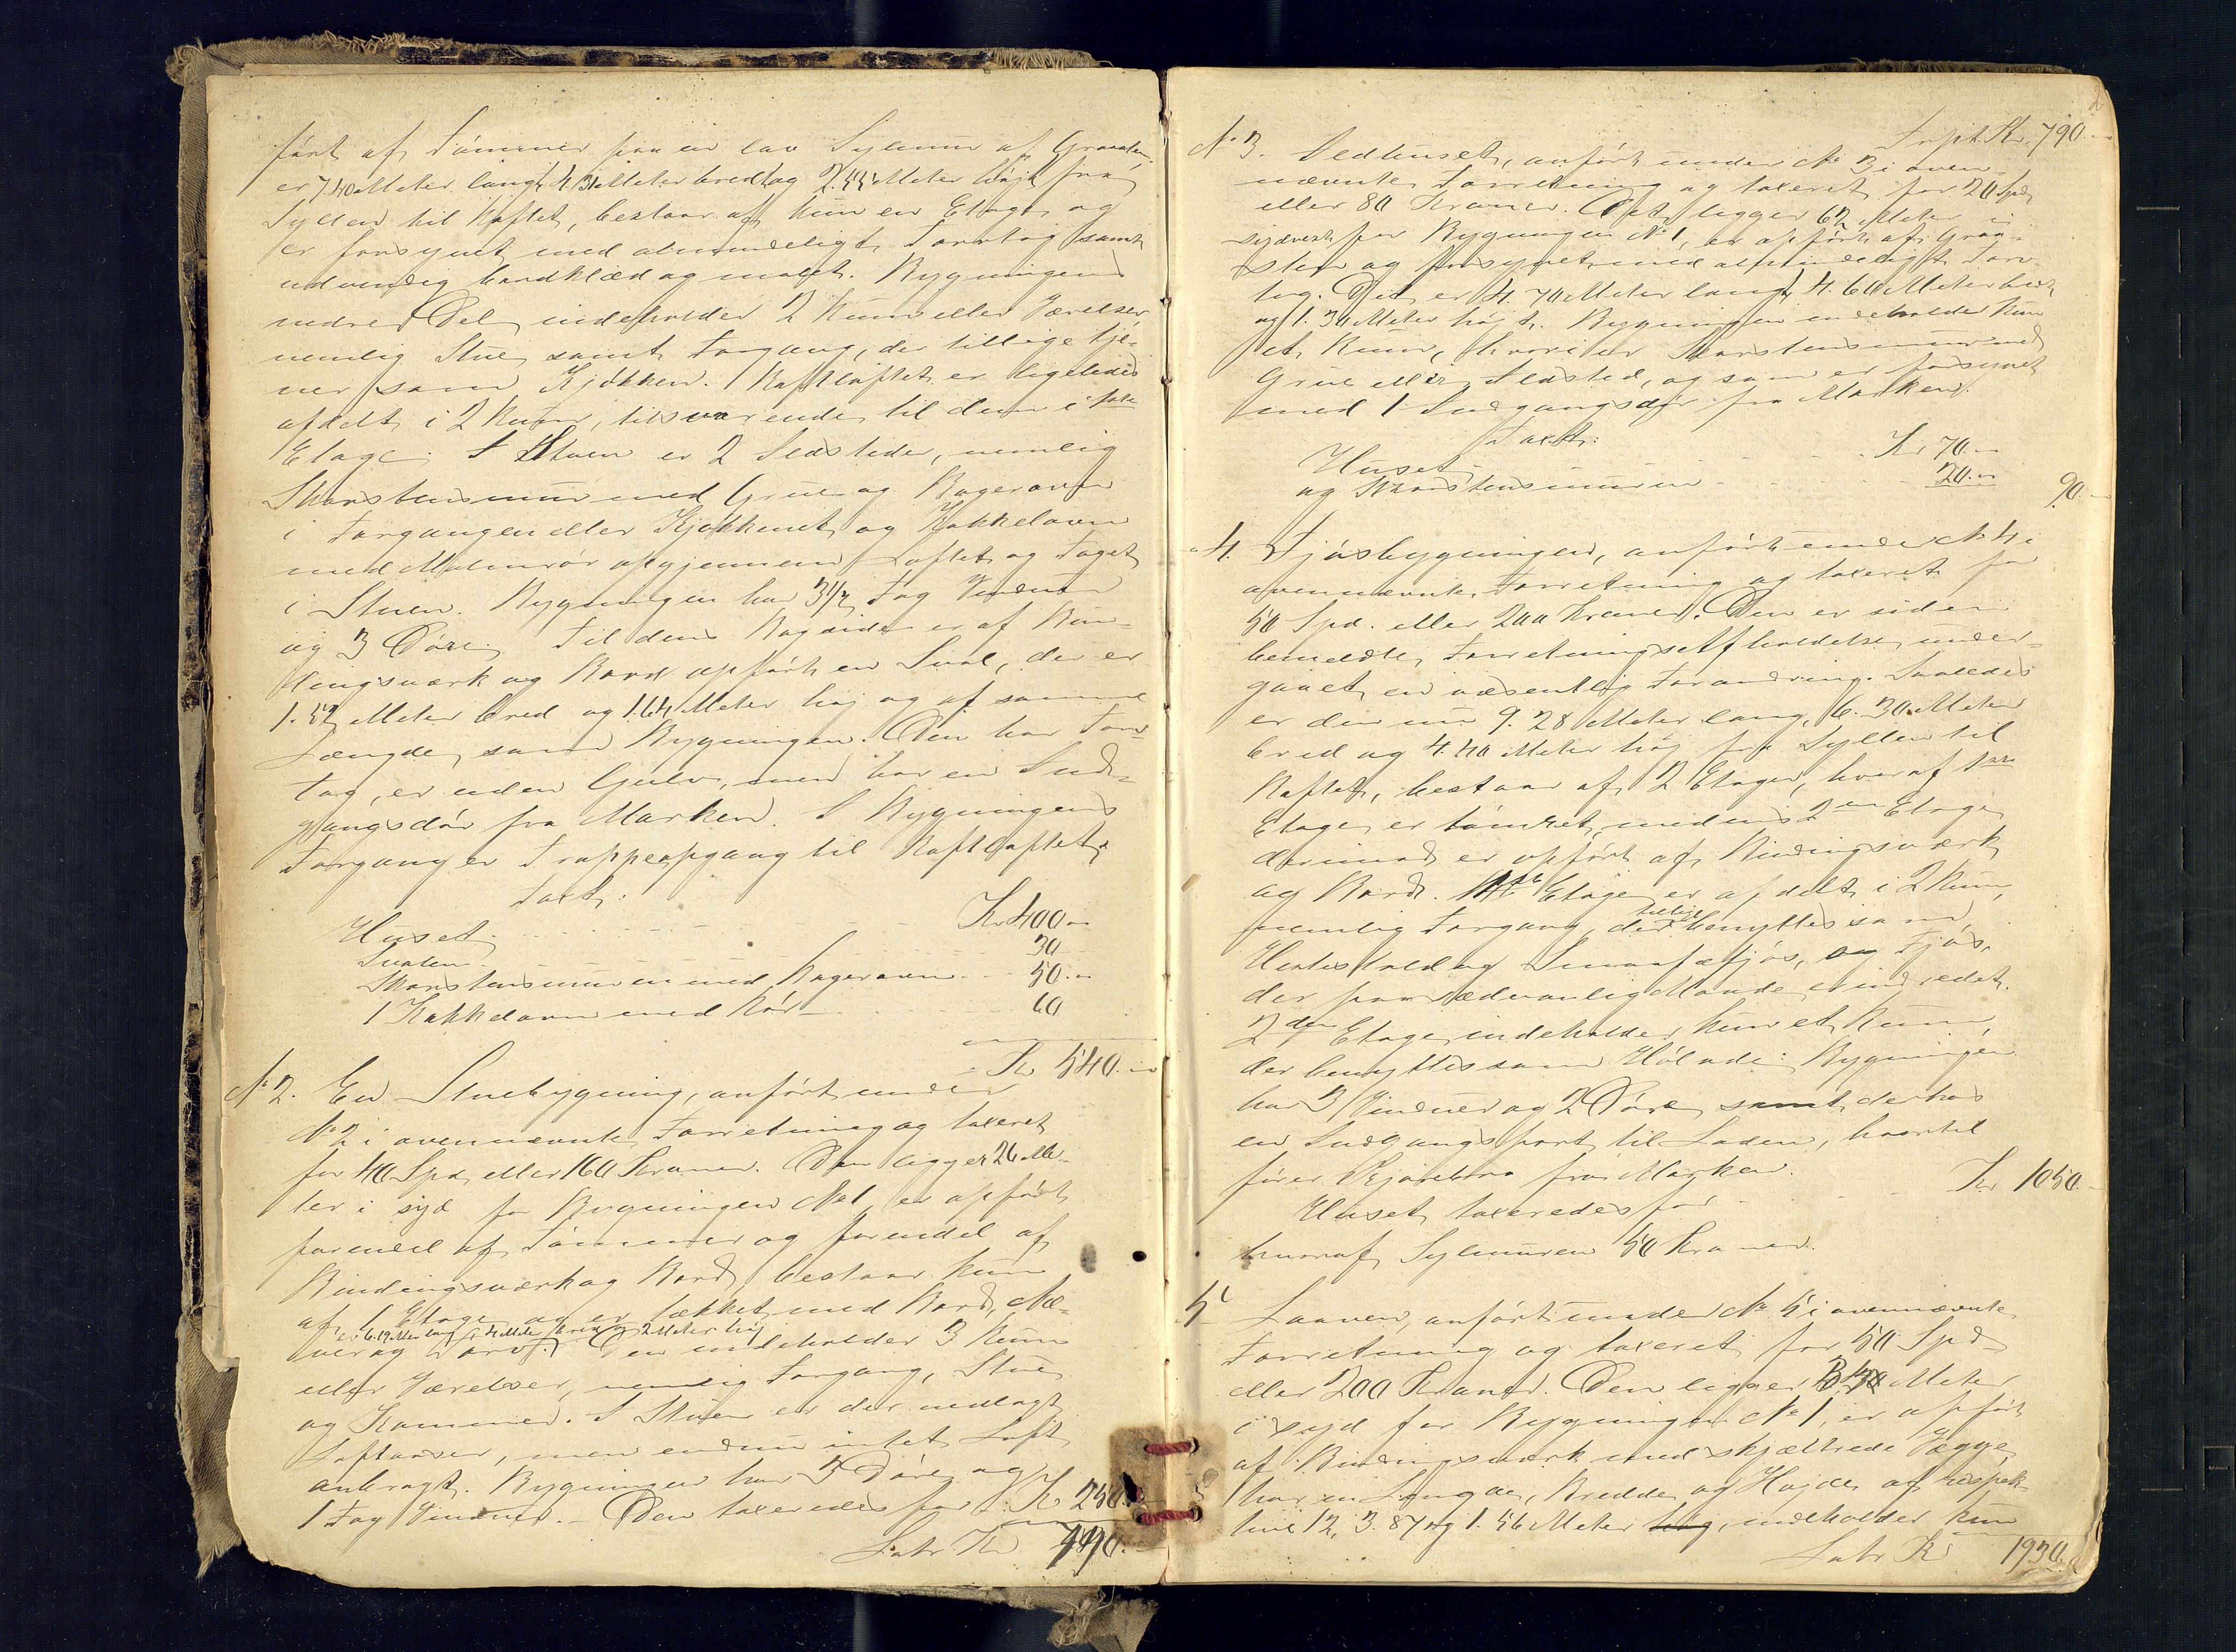 ført af Tømmer paa en lav Sylmuur af Graasten,
er 7.40 Meter langt, 4.31 Meter bredt og 2.55 Meter højt fra
Syllen til Raftet, bestaar af kun en Etage og
er forsynet med almindeligt Torvtag samt
udvendig bordklæd og malet. Bygningens
nedre Del indeholder 2 Rum eller Værelser,
nemlig Stue samt Forgang, der tillige tje-
ner som Kjøkken. Raftloftet er ligeledes
afdelt i 2 Rum, tilsvarende til dem i 1ste
Etage. I Stuen er 2 Ildsteder, nemlig
Skorstensmuur med Grue og Bagerovn
i Forgangen eller Kjøkkenet og Kakkelovn
med Malmrør opgjennem Loftet og Taget
i Stuen. Bygningen har 3 1/2 Fag Vinduer
og 3 Døre. Til dens Bagside er af Bin-
dingsværk og Bord opført en Sval, der er
1.52 Meter bred og 1.64 Meter høj og af samme
Længde som Bygningen. Den har Torv-
tag, er uden Gulv, men har en Ind-
gangsdør fra Marken. I Bygningens
Forgang er Trappeopgang til Raftloftet.
Taxt:
Huset Kr 400 "
Svalen 30
Skorstensmuren med Bagerovn 50. "
1 Kakkelovn med Rør 60
Kr 540. "
No 2. En Stuebygning, anført under
No 2 i ovennævnte Forretning og taxeret
for 40 Spd. eller 160 Kroner. Den ligger 26 Me-
ter i syd for Bygningen No 1, er opført
forendel af Tømmer og forendel af
Bindingsværk og Bord, bestaar kun
af 1 Etage og er tækket med Bord, Næ-
er 6.19 Meter lang, 4 Meter bred og 2 Meter høj
ver og Torv. Den indeholder 3 Rum
eller Værelser, nemlig Forgang, Stue
og Kammer. I Stuen er der nedlagt
Loftsaaser, men endnu intet Loft
anbragt. Bygningen har 3 Døre og
1 Fag Vinduer. – Den taxeredes for: Kr 250. "
Latr. Kr 790. "
Trspt. Kr 790. "
No 3. Ildhuset, anført under No 3 i oven-
nævnte Forretning og taxeret for 20 Spd.
eller 80 Kroner. Det ligger 62 Meter i
sydvest for Bygningen No 1, er opført af Graa-
sten og forsynet med almindeligt Torv-
tag. Det er 4.70 Meter langt, 4.60 Meter bredt
og 1.30 Meter højt. Bygningen indeholder kun
et Rum, hvori er Skorstensmuur med
Grue eller Ildsted, og som er forsynet
med 1 Indgangsdør fra Marken.
Taxt:
Huset Kr 70. "
og Skorstensmuren 20. "
90. "
" 4. Fjøsbygningen, anført under No 4 i
ovennævnte Forretning og taxeret for
50 Spd. eller 200 Kroner. Den er siden
bemeldte Forretnings Afholdelse under-
gaaet en væsentlig Forandring. Saaledes
er den nu 9.28 Meter lang, 6.30 Meter
bred og 4.40 Meter høj fra Syllen til
Raftet, bestaar af 2 Etager, hvoraf 1ste
Etage er tømret, medens 2den Etage
derimod er opført af Bindingsværk
og Bord. 1ste Etage er afdelt i 2 Rum,
tillige
nemlig Forgang, der benyttes som
Hestestald og Smaafæfjøs, og Fjøs,
der paa sædvanlig Maade er indredet.
2den Etage indeholder kun et Rum,
der benyttes som Hølade. Bygningen
har 3 Vinduer og 2 Døre samt derhos
en Indgangsport til Laden, hvortil
fører Kjørebro fra Marken.
Huset taxeredes for Kr 1050. "
hvoraf Sylmuren 50 Kroner.
5 Laaven, anført under No 5 i ovennævnte
Forretning og taxeret for 50 Spd.
eller 200 Kroner. Den ligger Meter
i syd for Bygningen No 1, er opført
af Bindingsværk med skjeltrede Vægge,
har en Længde, Bredde og Højde af respek-
tive 12, 3.87 og 1.56 Meter høj, indeholder kun
Latr. Kr 1930. "